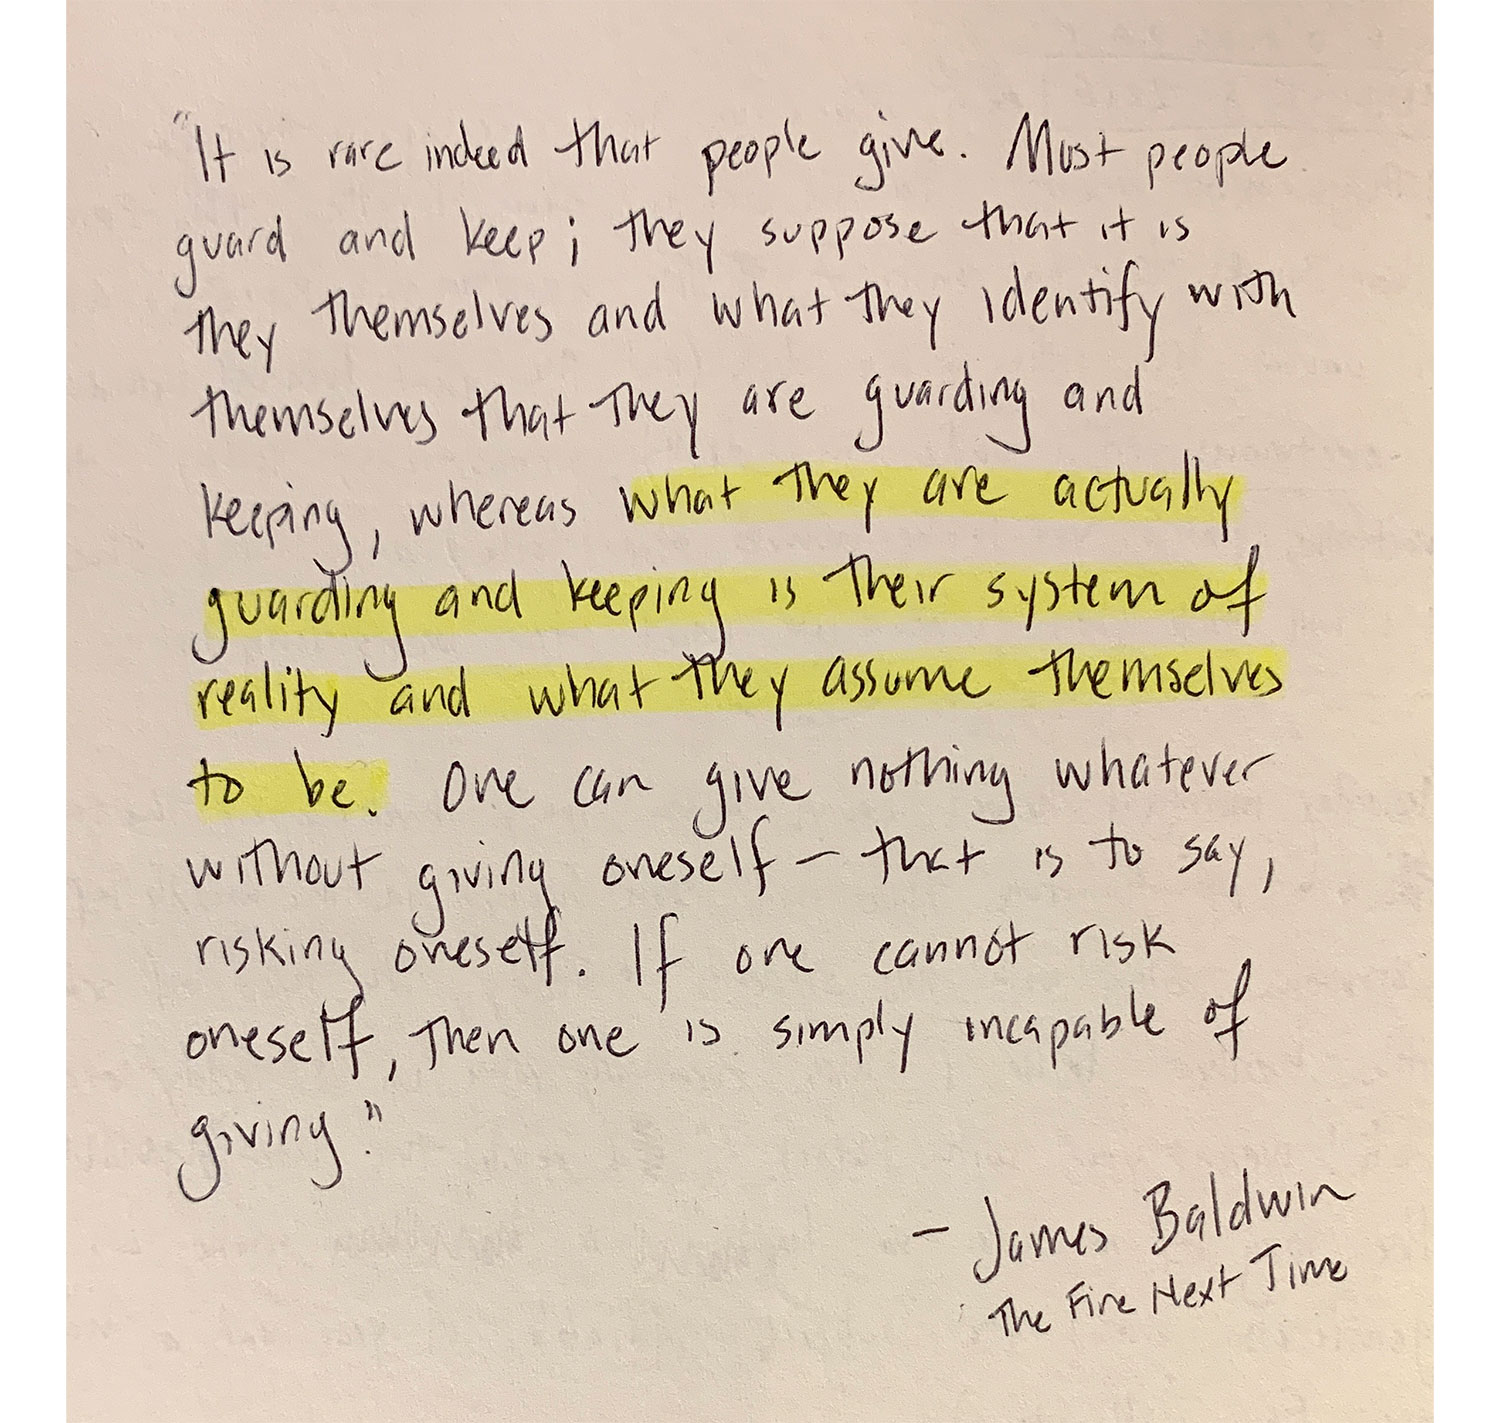 "It is rare indeed that people give. Most people
guard and keep; they suppose that it is
they themselves and what they identify with
themselves that they are guarding and
keeping, whereas what they are actually
guarding and keeping is their system of
reality and what they assume themselves
to be. One can give nothing whatever
without giving oneself – that is to say,
risking oneself. If one cannot risk
oneself, then one is simply incapable of
giving."
– James Baldwin
The Fire Next Time